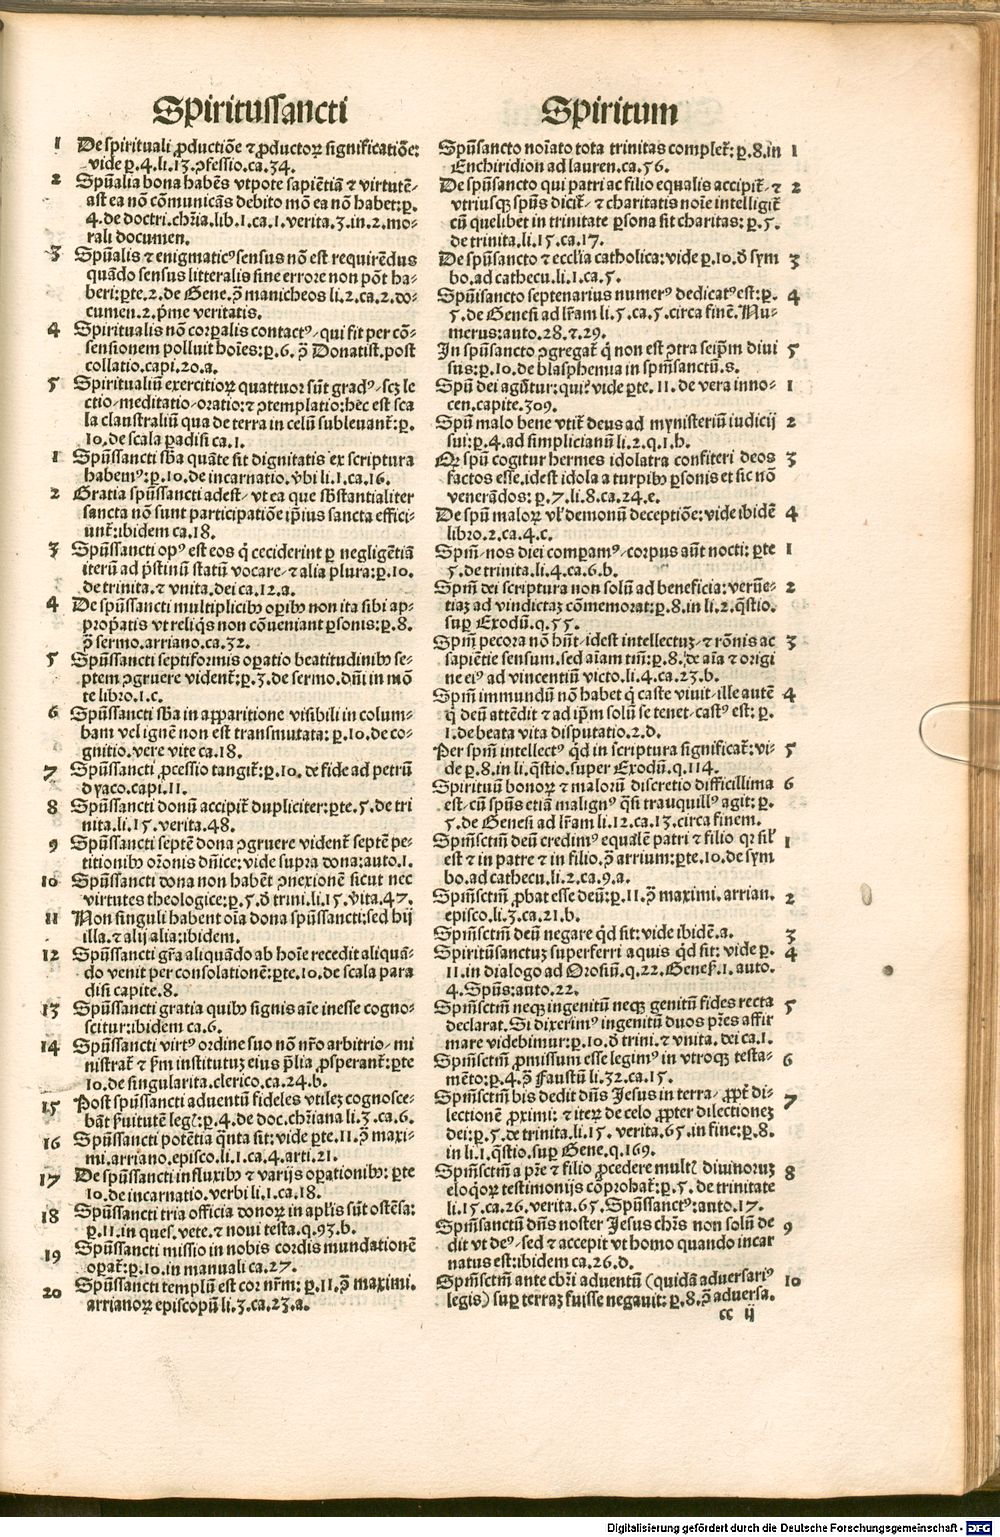 Spiritussancti
1 De spirituali ꝓductiōe ⁊ ꝓductoꝝ significatiōe:
vide ꝑ.4.li.13.ↄfessio.ca.34.
2 Spūalia bona habēs vtpote sapiētiā ⁊ virtutē-
ast ea nō cōmunicās debito mō ea nō habet:ꝑ.
4.de doctri.chr̄ia.lib.1.ca.1.verita.3.in.2.mo-
rali documen.
3 Spūalis ⁊ enigmaticꝰ sensus nō est requirēdus
quādo sensus litteralis sine errore non pōt ha-
beri:ꝑte.2.de Gene.ↄ̄ manicheos li.2.ca.2.do-
cumen.2.p̄me veritatis.
4 Spiritualis nō corꝑalis contactꝰ/qui fit per cō-
sensionem polluit hoīes:ꝑ.6.ↄ̄ Donatist.post
collatio.capi.20.a.
5 Spiritualiū exercitioꝝ quattuor sūt gradꝰ/scꝫ le
ctio/meditatio/oratio:⁊ ↄtemplatio:hēc est sca
la claustraliū qua de terra in celū subleuant̄:ꝑ.
10.de scala ꝑadisi ca.1.
1 Spūssancti sb̄a quāte sit dignitatis ex scriptura
habemꝰ:ꝑ.10.de incarnatio.v̄bi li.1.ca.16.
2 Gratia spūssancti adest/vt ea que sb̄stantialiter
sancta nō sunt participatiōe ip̄ius sancta effici-
unt̄:ibidem ca.18.
3 Spūssancti opꝰ est eos q̄ ceciderint ꝑ negligētiā
iterū ad p̄stinū statū vocare/⁊ alia plura:ꝑ.10.
de trinita.⁊ vnita.dei ca.12.a.
4 De spūssancti multiplicibꝰ oꝑibꝰ non ita sibi ap-
prop̄atis vt reliq̄s non cōueniant ꝑsonis:ꝑ.8.
ↄ̄ sermo.arriano.ca.32.
5 Spūssancti septiformis oꝑatio beatitudinibꝰ se-
ptem ↄgruere vident̄:ꝑ.3.de sermo.dn̄i in mō
te libro.1.c.
6 Spūssancti sb̄a in apparitione visibili in colum-
bam vel ignē non est transmutata:ꝑ.10.de co-
gnitio.vere vite ca.18.
7 Spūssancti ꝓcessio tangit̄:ꝑ.10.de fide ad petrū
dyaco.capi.11.
8 Spūssancti donū accipit̄ dupliciter:ꝑte.5.de tri
nita.li.15.verita.48.
9 Spūssancti septē dona ↄgruere vident̄ septē pe-
titionibꝰ or̄onis dn̄ice:vide supra dona:auto.1.
10 Spūssancti dona non habēt ↄnexionē sicut nec
virtutes theologice:ꝑ.5.ď trini.li.15.v̄ita.47.
11 Non singuli habent oīa dona spūssancti:sed hij
illa.⁊ alij alia:ibidem.
12 Spūssancti gr̄a aliquādo ab hoīe recedit aliquā-
do venit per consolationē:ꝑte.10.de scala para
disi capite.8.
13 Spūssancti gratia quibꝰ signis aīe inesse cogno-
scitur:ibidem ca.6.
14 Spūssancti virtꝰ ordine suo nō nr̄o arbitrio/mi
nistrat̄ ⁊ ẜm institutuꝫ eius p̄lia ꝓsperant̄:ꝑte
10.de singularita.clerico.ca.24.b.
15 Post spūssancti aduentū fideles vtileꝫ cognosce-
bāt ẜuitutē legꝭ:ꝑ.4.de doc.chr̄iana li.3.ca.6.
16 Spūssancti potētia q̄nta sit:vide ꝑte.11.ↄ̄ maxi-
mi.arriano.episco.li.1.ca.4.arti.21.
17 De spūssancti influxibꝰ ⁊ varijs oꝑationibꝰ:ꝑte
10.de incarnatio.verbi li.1.ca.18.
18 Spūssancti tria officia donoꝝ in apl̄is sūt ostēsa:
ꝑ.11.in ques.vete.⁊ noui testa.q.93.b.
19 Spūssancti missio in nobis cordis mundationē
oꝑat̄:ꝑ.10.in manuali ca.27.
20 Spūssancti templū est cor nr̄m:ꝑ.11.ↄ̄ maximi.
arrianoꝝ episcopū li.3.ca.23.a.
Spiritum
Spūsancto noīato tota trinitas complet̄:ꝑ.8.in 1
Enchiridion ad lauren.ca.56.
De spūsancto qui patri ac filio equalis accipit̄/⁊ 2
vtriusqꝫ spūs dicit̄/⁊ charitatis noīe intelligit̄
cū quelibet in trinitate ꝑsona sit charitas:ꝑ.5.
de trinita.li.15.ca.17.
De spūsancto ⁊ eccl̄ia catholica:vide ꝑ.10.ď sym 3
bo.ad cathecu.li.1.ca.5.
Spūisancto septenarius numerꝰ dedicatꝰ est:ꝑ. 4
5.de Genesi ad lr̄am li.5.ca.5.circa finē.Nu-
merus:auto.28.⁊.29.
In spūsancto ↄgregat̄ q̄ non est ↄtra seip̄m diui 5
sus:ꝑ.10.de blasphemia in spm̄sanctū.s.
Spū dei agūtur:qui?vide ꝑte.11.de vera inno- 1
cen.capite.309.
Spū malo bene vtit̄ deus ad mynisteriū iudicij 2
sui:ꝑ.4.ad simplicianū li.2.q.1.b.
Qꝛ spū cogitur hermes idolatra confiteri deos 3
factos esse.idest idola a turpibꝰ ꝑsonis et sic nō
venerādos:ꝑ.7.li.8.ca.24.e.
De spū maloꝝ vl̄ demonū deceptiōe:vide ibidē 4
libro.2.ca.4.c.
Spm̄/nos diei comꝑamꝰ/corpus aūt nocti:ꝑte 1
5.de trinita.li.4.ca.6.b.
Spm̄ dei scriptura non solū ad beneficia:verūe- 2
tiaꝫ ad vindictaꝫ cōmemorat:ꝑ.8.in li.2.q̄stio.
suꝑ Exodū.q.55.
Spm̄ pecora nō hn̄t/idest intellectuꝫ/⁊ rōnis ac 3
sapiētie sensum.sed aīam tm̄:ꝑ.8.de aīa ⁊ origi
ne eiꝰ ad vincentiū victo.li.4.ca.23.b.
Spm̄ immundū nō habet q̄ caste viuit/ille autē 4
q̄ deū attēdit ⁊ ad ip̄m solū se tenet/castꝰ est:ꝑ.
1.de beata vita disputatio.2.d.
Per spm̄ intellectꝰ q̄d in scriptura significat̄:vi- 5
de ꝑ.8.in li.q̄stio.super Exodū.q.114.
Spirituū bonoꝝ ⁊ maloꝝ discretio difficillima 6
est/cū spūs etiā malignꝰ q̄si tranquillꝰ agit:ꝑ.
5.de Genesi ad lr̄am li.12.ca.13.circa finem.
Spm̄sctm̄ deū credimꝰ equalē patri ⁊ filio qꝛ sil̄ 1
est ⁊ in patre ⁊ in filio.ↄ̄ arrium:ꝑte.10.de sym
bo.ad cathecu.li.2.ca.9.a.
Spm̄sctm̄ ꝓbat esse deū:ꝑ.11.ↄ̄ maximi.arrian. 2
episco.li.3.ca.21.b.
Spm̄sctm̄ deū negare q̄d sit:vide ibidē.a. 3
Spiritūsanctuꝫ superferri aquis q̄d sit:vide ꝑ. 4
11.in dialogo ad Orosiū.q.22.Genes.1.auto.
4.Spūs:auto.22.
Spm̄sctm̄ neqꝫ ingenitū neqꝫ genitū fides recta 5
declarat.Si dixerimꝰ ingenitū duos pr̄es affir
mare videbimur:ꝑ.10.ď trini.⁊ vnita.dei ca.1.
Spm̄sctm̄ ꝓmissum esse legimꝰ in vtroqꝫ testa- 6
mēto:ꝑ.4.ↄ̄ Faustū li.32.ca.15.
Spm̄sctm̄ bis dedit dn̄s Jesus in terra/ꝓpt̄ di- 7
lectionē ꝓximi:⁊ iteꝝ de celo ꝓpter dilectioneꝫ
dei:ꝑ.5.de trinita.li.15.verita.65.in fine:ꝑ.8.
in li.1.q̄stio.suꝑ Gene.q.169.
Spm̄sctm̄ a pr̄e ⁊ filio ꝓcedere multꝭ diuinoruꝫ 8
eloq̄oꝝ testimonijs cōprobat̄:ꝑ.5.de trinitate
li.15.ca.26.verita.65.Spūssanctꝰ:auto.17.
Spm̄sanctū dn̄s noster Jesus chr̄s non solū de 9
dit vt deꝰ/sed ⁊ accepit vt homo quando incar
natus est:ibidem ca.26.d.
Spm̄sctm̄ ante chr̄i aduentū (quidā aduersariꝰ 10
legis) suꝑ terraꝫ fuisse negauit:ꝑ.8.ↄ̄ aduersa.
cc ij
Digitalisierung gefördert durch die Deutsche Forschungsgemeinschaft - DFG